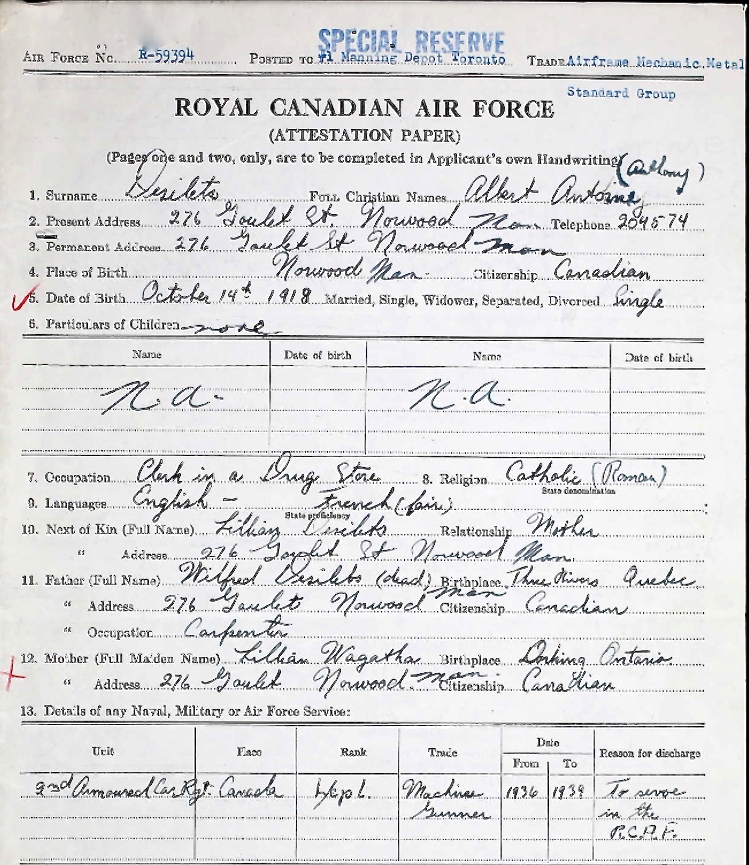 SPECIAL RESERVE
AIR FORCE No. R-59394 POSTED TO #1 Manning Depot Toronto TRADE Airframe Mechanic Metal
Standard Group
ROYAL CANADIAN AIR FORCE
(ATTESTATION PAPER)
(Pages one and two, only, are to be completed in Applicant's own Handwriting)
(Anthony)
1. Surname Desilets FULL Christian Names Albert Antoine
2. Present Address 276 Goulet St. Norwood Man Telephone 204574
3. Permanent Address 276 Goulet St Norwood Man
4. Place of Birth Norwood Man. Citizenship Canadian
5. Date of Birth October 14th 1918 Married, Single, Widower, Separated, Divorced Single
6. Particulars of Children none
Name Date of birth Name Date of birth
N.A. N.A.
7. Occupation Clerk in a Drug Store 8. Religion Catholic (Roman)
State denomination
9. Languages English - French (fair)
State proficiency
10. Next of Kin (Full Name) Lillian Desilets Relationship Mother
" Address 276 Goulet St Norwood Man
11. Father (Full Name) Wilfred Desilets (dead) Birthplace Three Rivers Quebec
" Address 276 Goulet Norwood Man Citizenship Canadian
" Occupation Carpenter
12. Mother (Full Maiden Name) Lillian Wagatha Birthplace Dorking Ontario
" Address 276 Goulet Norwood. Man. Citizenship Canadian
13. Details of any Naval, Military or Air Force Service:
Unit Place Rank Trade Date Reason for discharge
From To
2nd Armoured Car Rgt. Canada L/Cpl. Machine Gunner 1936 1939 To serve
in the
R.C.A.F.